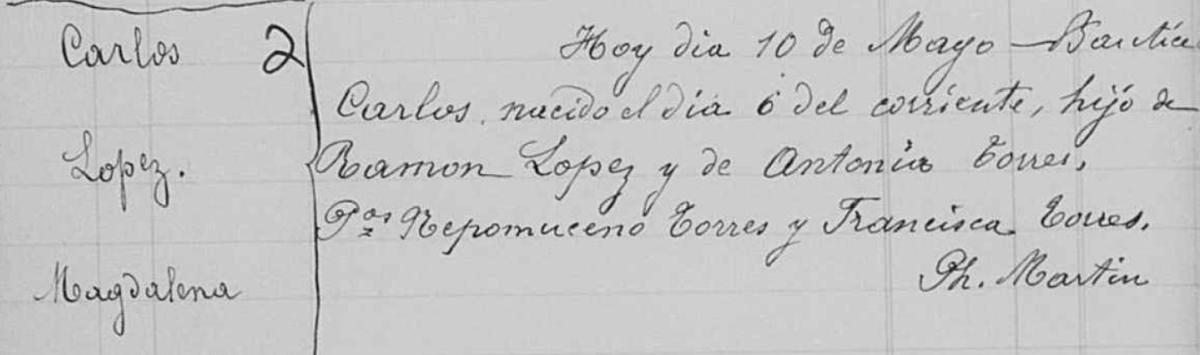 Carlos 2
Lopez.
Magdalena
Hoy dia 10 de Mayo Bauticé
Carlos, nacido el dia 6 del corriente, hijo de
Ramon Lopez y de Antonia Torres.
P.os Nepomuceno Torres y Francisca Torres.
Ph. Martin